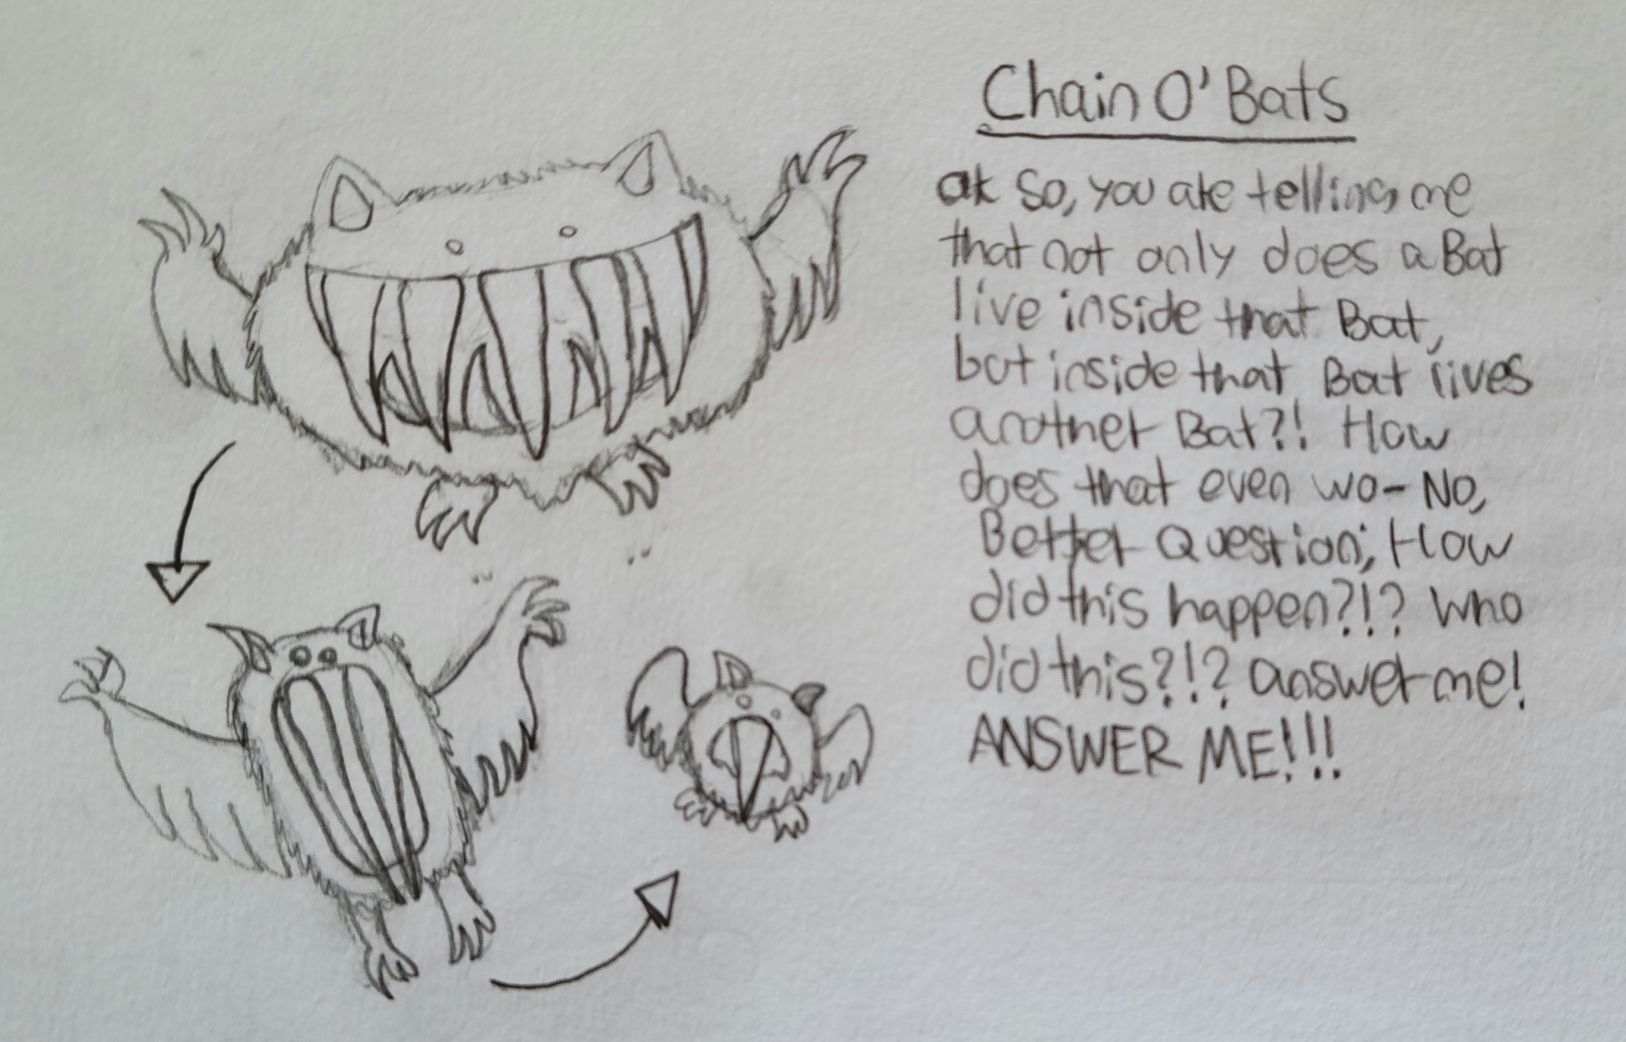 Chain O' Bats
ok so, you are telling me
that not only does a Bat
live inside that Bat,
but inside that Bat lives
another Bat?! How
does that even wo- No,
Better Question; How
did this happen?!? Who
did this?!? answer me!
ANSWER ME!!!